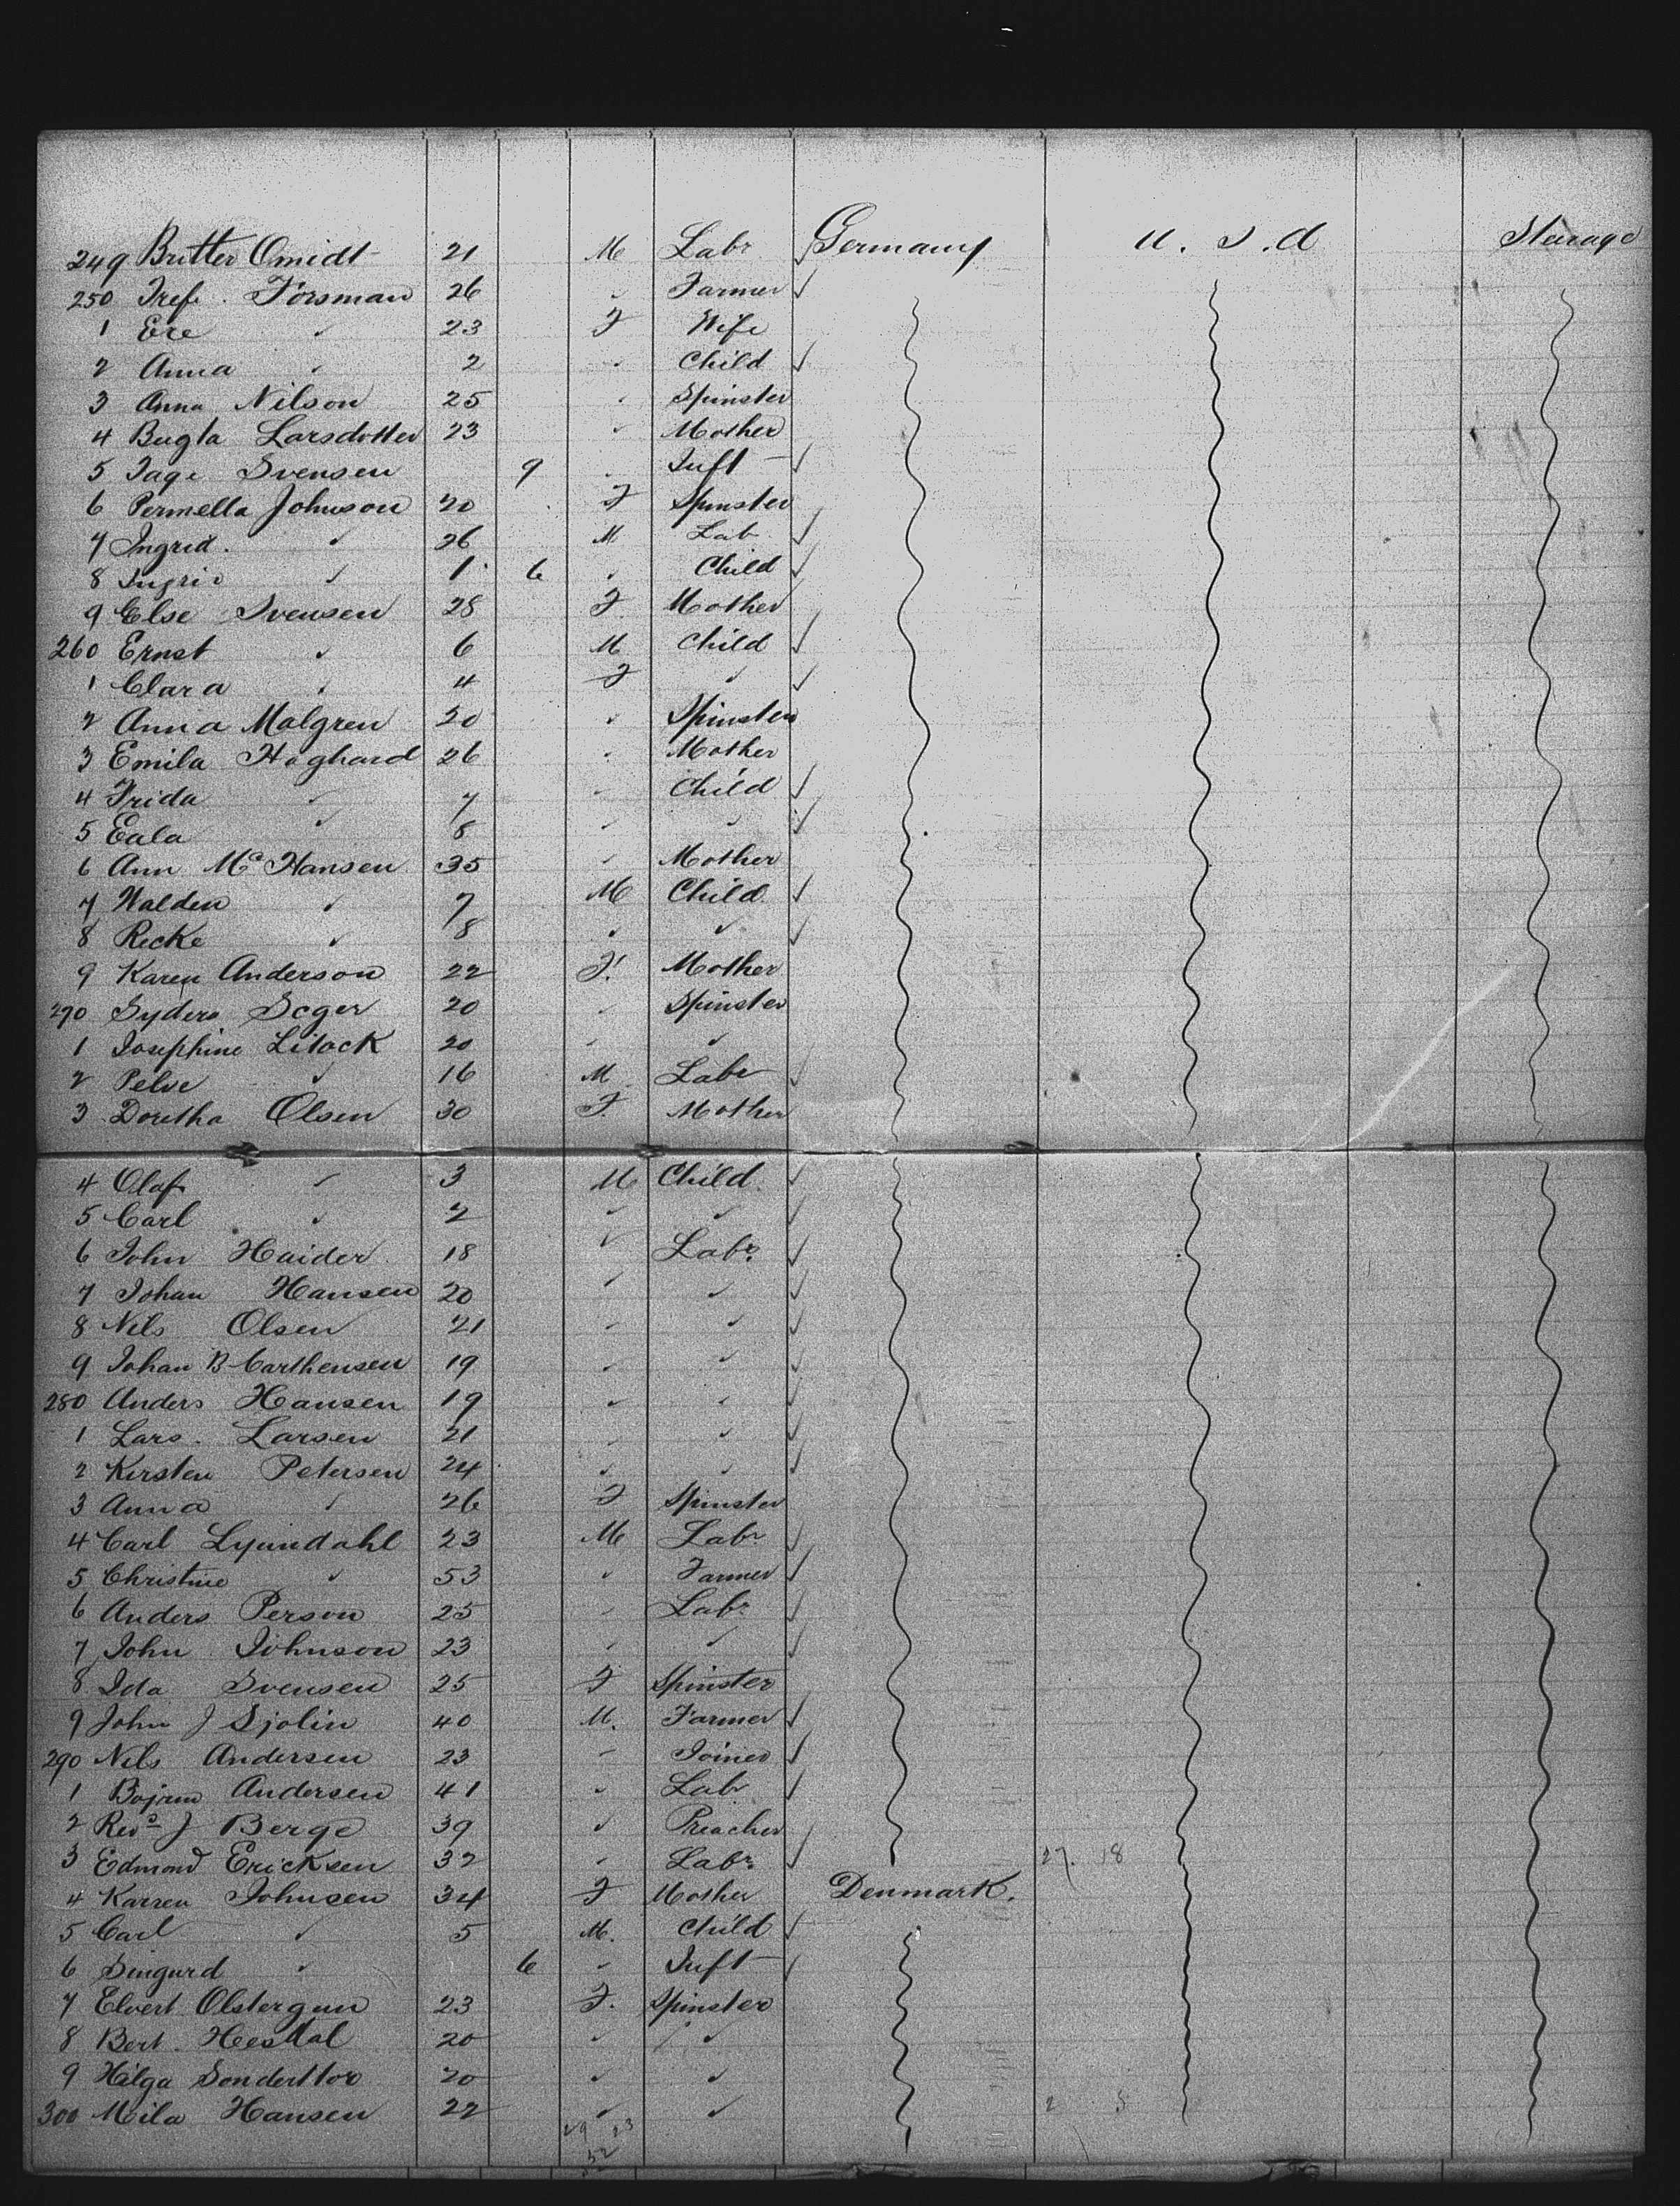 249 Britter Omidt 21 M Labr Germany U. S. A Steerage
250 Tref. Forsman 26 " Farmer
1 Eve " 23 F Wife
2 Anna " 2 " Child
3 Anna Nilson 25 " Spinster
4 Bugta Larsdotter 23 " Mother
5 Tage Svensen 9 " Inft
6 Permella Johnson 20 F Spinster
7 Ingrid. " 26 M Lab
8 Ingrid " 1 6 " Child
9 Else Svensen 28 F. Mother
260 Ernst " 6 M Child
1 Clara " 4 F "
2 Anna Malgren 20 " Spinster
3 Emila Hoghard 26 " Mother
4 Frida " 7 " Child
5 Eala " 8 " "
6 Ann Mc Hansen 35 " Mother
7 Walden " 7 M Child
8 Recke " 8 " "
9 Karen Anderson 22 F. Mother
270 Syders Seger 20 " Spinster
1 Josephine Litock 20 " "
2 Pelve " 16 M Labr
3 Doretha Olsen 30 F. Mother
4 Olaf " 3 M Child
5 Carl " 2 " "
6 John Haider 18 " Labr.
7 Johan Hansen 20 " "
8 Nils Olsen 21 " "
9 Johan B Carthensen 19 " "
280 Anders Hansen 19 " "
1 Lars. Larsen 21 " "
2 Kirsten Petersen 24 " "
3 Anna " 26 F Spinster
4 Carl Lyundahl 23 M Labr
5 Christine " 53 " Farmer
6 Anders Person 25 " Labr
7 John Johnson 23 " "
8 Ida Svensen 25 F Spinster
9 John J Sjolin 40 M. Farmer
290 Nils Andersen 23 " Joiner
1 Bojrem Andersen 41 " Lab
2 Revd J Berge 39 " Preacher
3 Edmond Ericksen 32 " Labr. 27. 18
4 Karren Johnsen 34 F Mother Denmark.
5 Carl " 5 M. Child
6 Singurd " 6 " Inft
7 Elvert Olstergun 23 F. Spinster
8 Bert. Hesdal 20 " "
9 Hilga Sonderttor 20 " "
300 Mila Hansen 22 " "
29 23
52